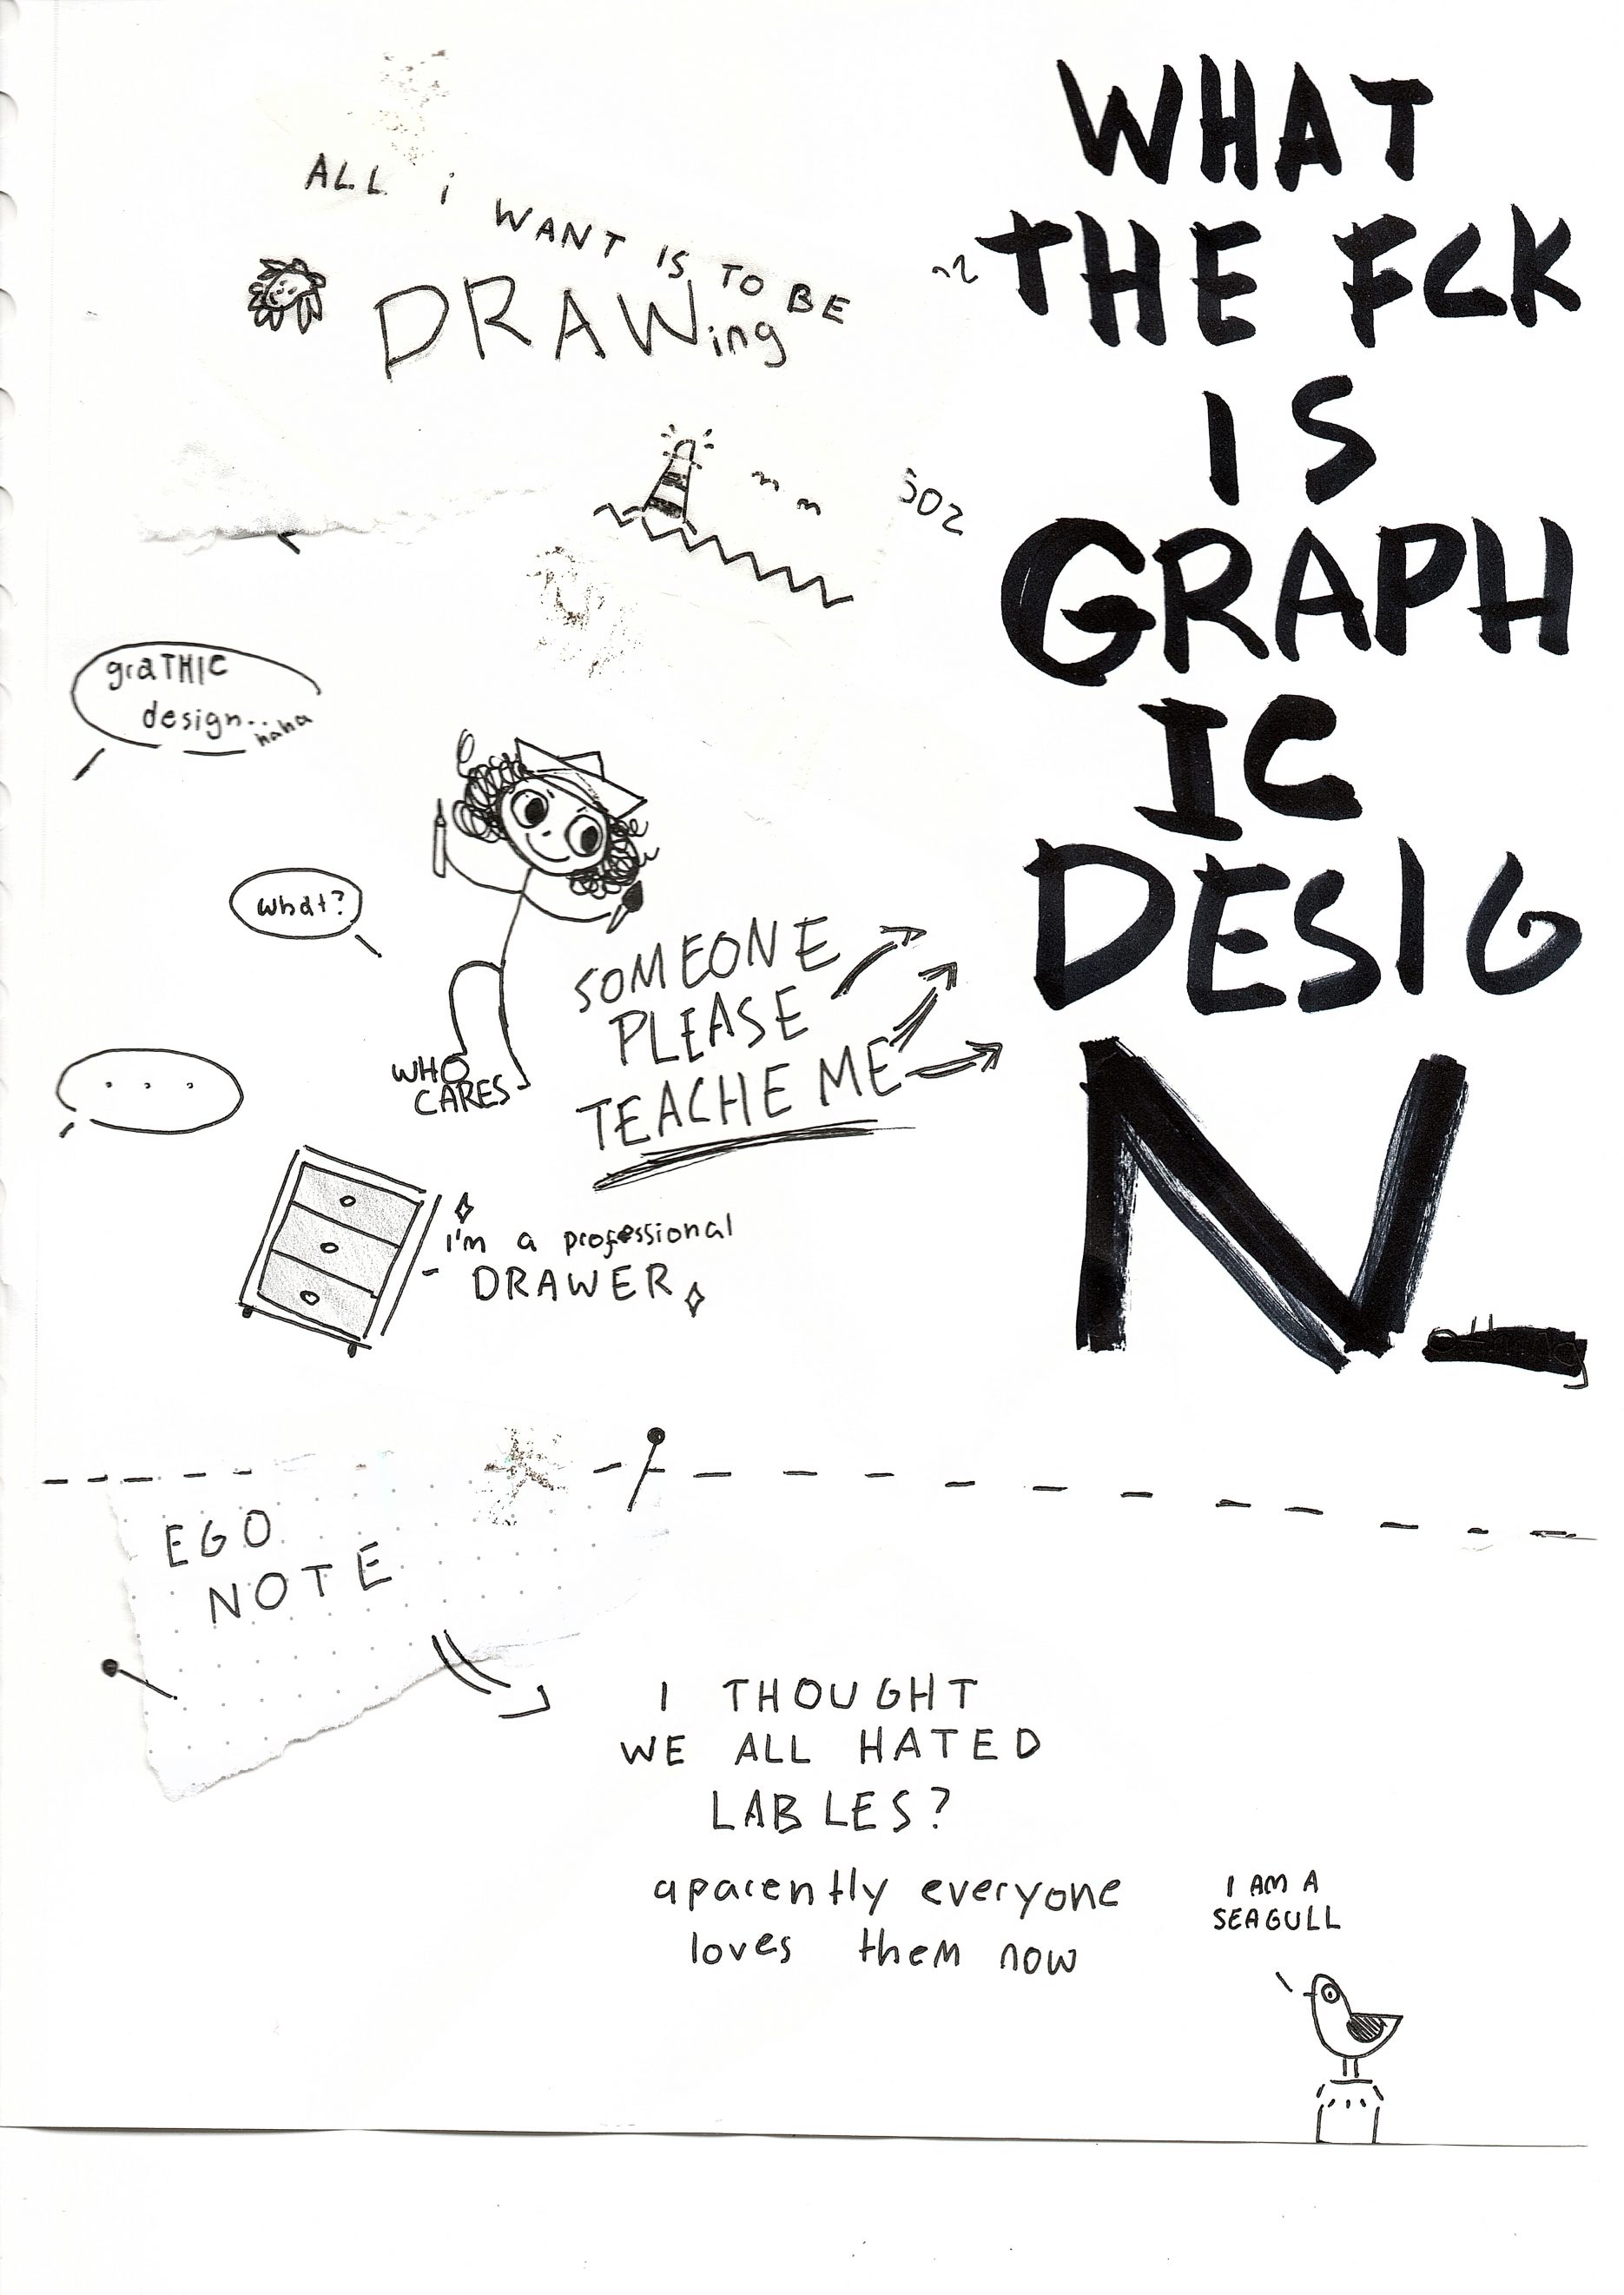 WHAT
THE FCK
IS
GRAPH
IC
DESIG
N
ALL i WANT IS TO BE
DRAWing
SOS
graTHIC
design.. haha
what?
WHO
CARES
SOMEONE
PLEASE
TEACHE ME
. . .
I'm a professional
DRAWER
EGO
NOTE
I THOUGHT
WE ALL HATED
LABLES?
aparently everyone
loves them now
I AM A
SEAGULL